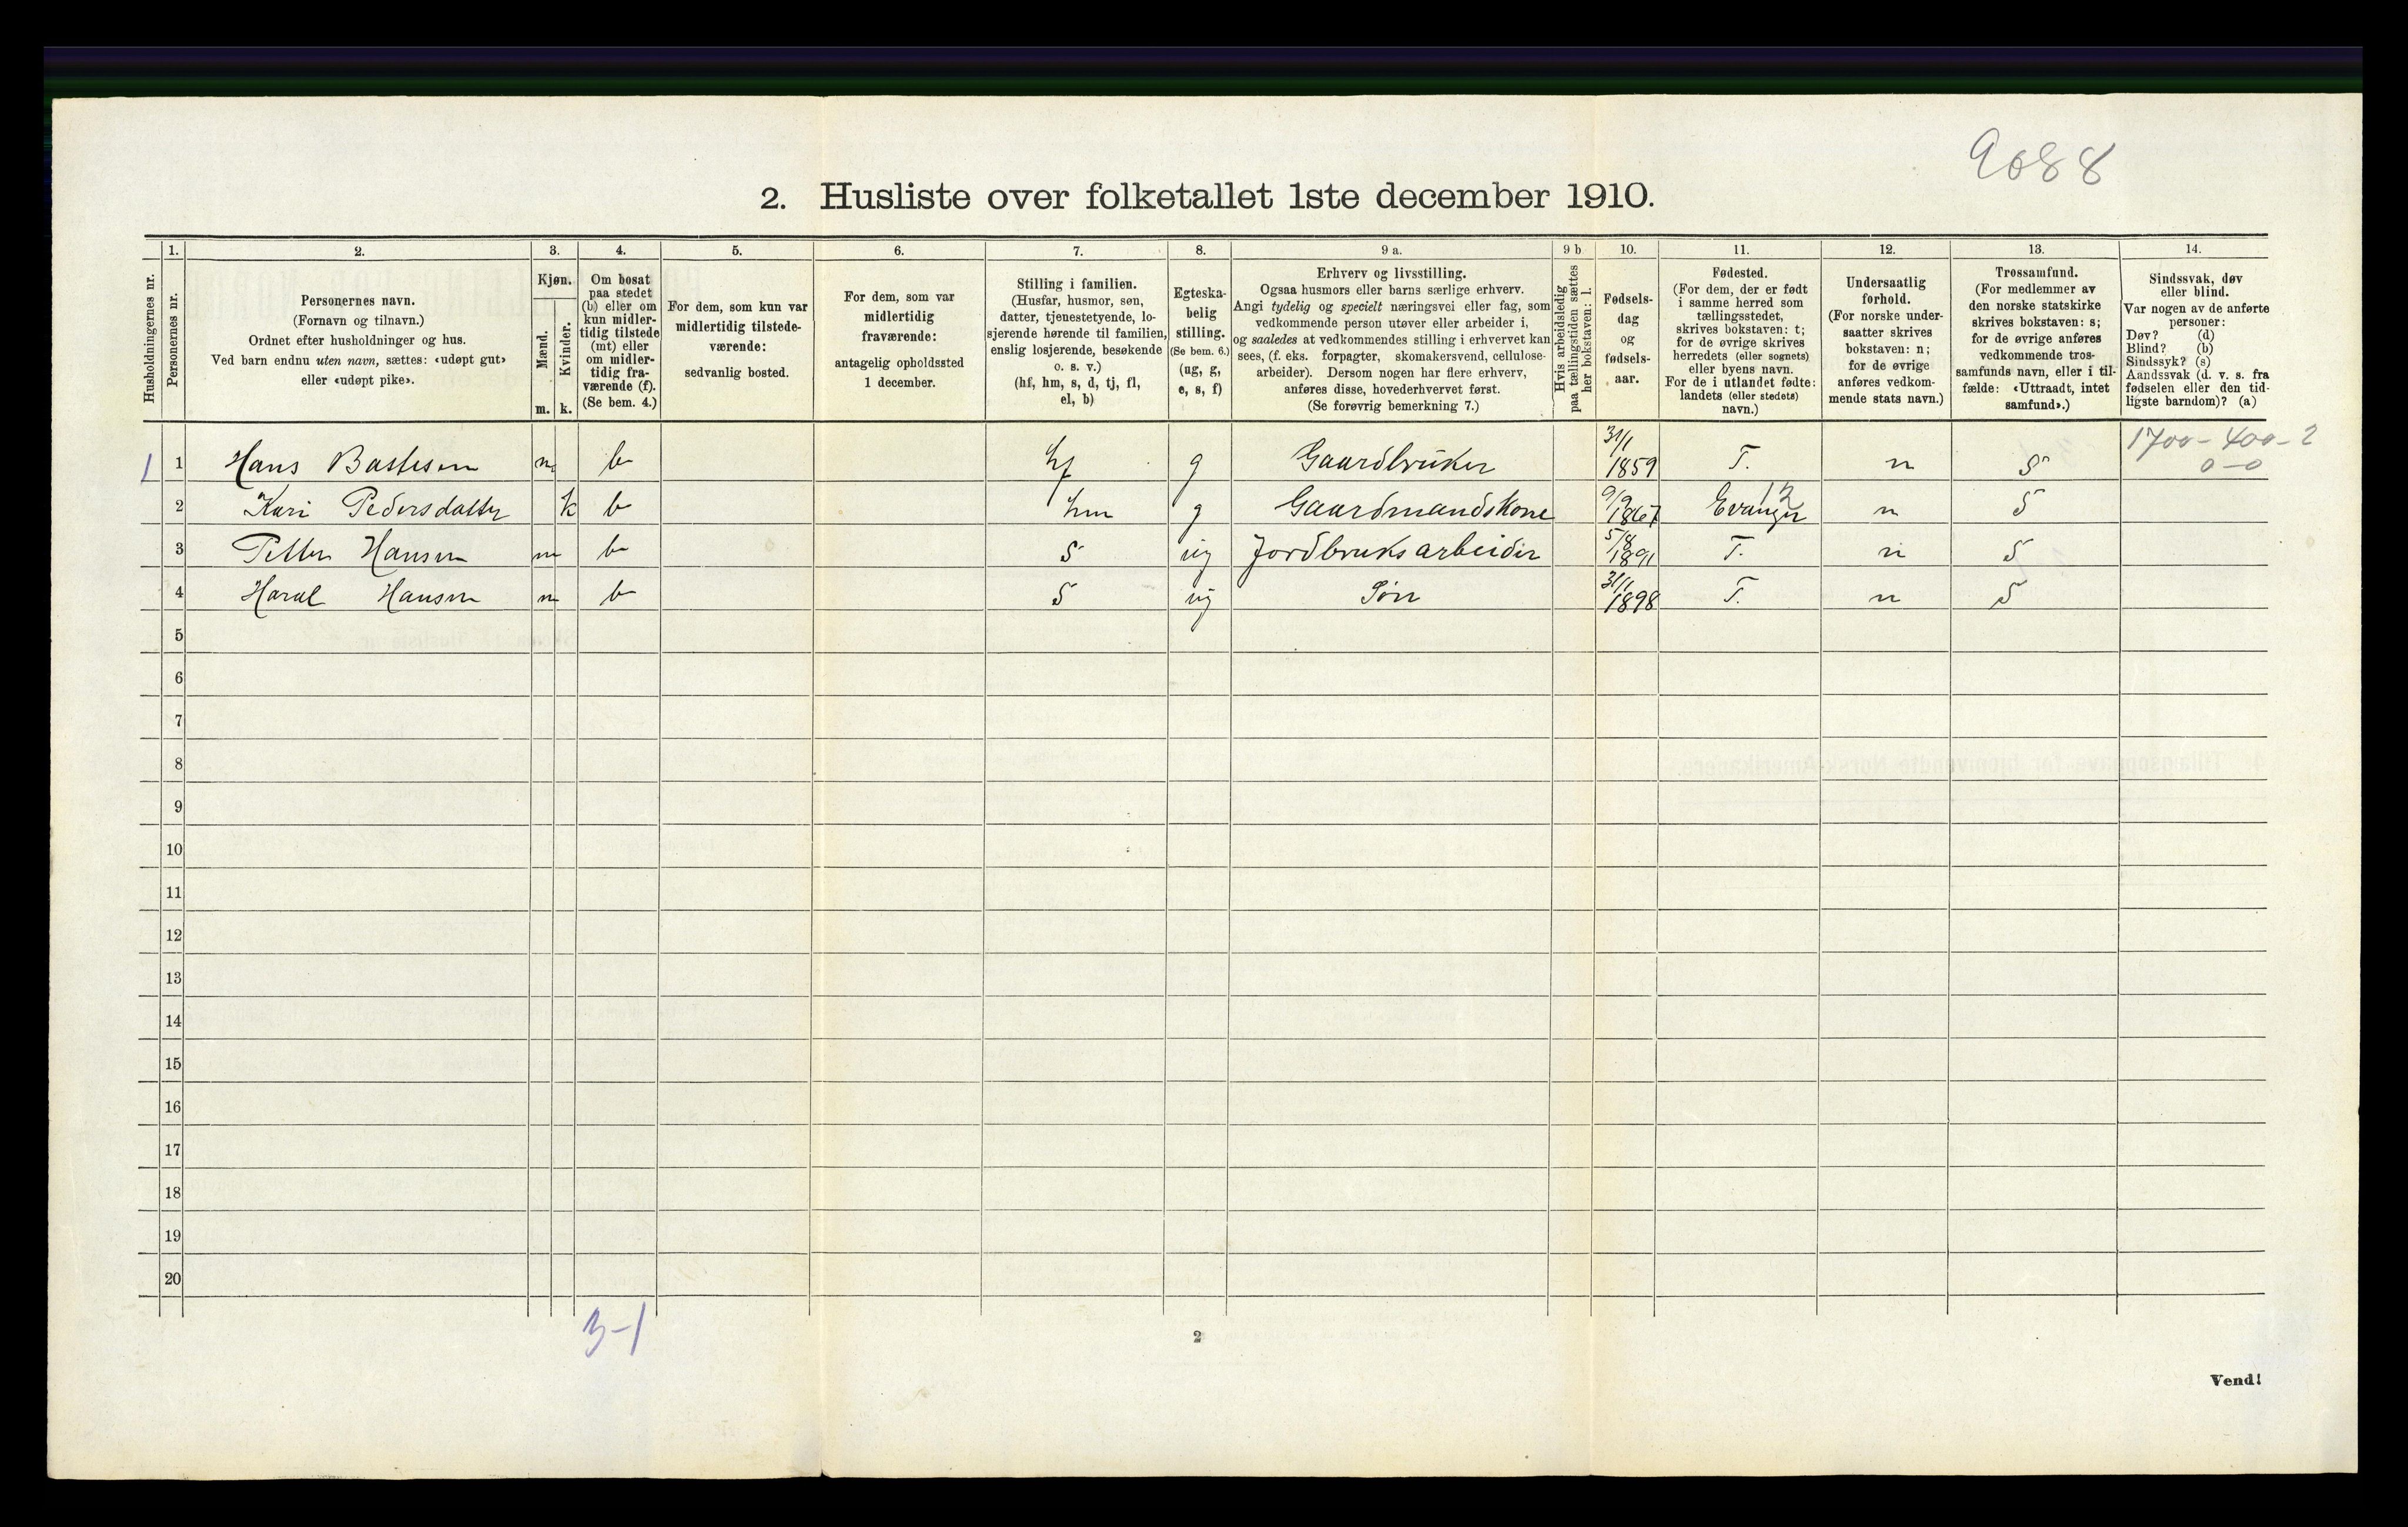 9088
2. Husliste over folketallet 1ste december 1910.
1. 2. 3. 4. 5. 6. 7. 8. 9 a. 9 b 10. 11. 12. 13. 14.
Husholdningernes nr.
Personernes nr.
Personernes navn.
(Fornavn og tilnavn.)
Ordnet efter husholdninger og hus.
Ved barn endnu uten navn, sættes: «udøpt gut»
eller «udøpt pike».
Kjøn.
Mænd.
Kvinder.
m. k.
Om bosat
paa stedet
(b) eller om
kun midler-
tidig tilstede
(mt) eller
om midler-
tidig fra-
værende (f).
(Se bem. 4.)
For dem, som kun var
midlertidig tilstede-
værende:
sedvanlig bosted.
For dem, som var
midlertidig
fraværende:
antagelig opholdssted
1 december.
Stilling i familien.
(Husfar, husmor, søn,
datter, tjenestetyende, lo-
sjerende hørende til familien,
enslig losjerende, besøkende
o. s. v.)
(hf, hm, s, d, tj, fl,
el, b)
Egteska-
belig
stilling.
(Se bem. 6.)
(ug, g,
e, s, f)
Erhverv og livsstilling.
Ogsaa husmors eller barns særlige erhverv.
Angi tydelig og specielt næringsvei eller fag, som
vedkommende person utøver eller arbeider i,
og saaledes at vedkommendes stilling i erhvervet kan
sees, (f. eks. forpagter, skomakersvend, cellulose-
arbeider). Dersom nogen har flere erhverv,
anføres disse, hovederhvervet først.
(Se forøvrig bemerkning 7.)
Hvis arbeidsledig
paa tællingstiden sættes
her bokstaven: l.
Fødsels-
dag
og
fødsels-
aar.
Fødested.
(For dem, der er født
i samme herred som
tællingsstedet,
skrives bokstaven: t;
for de øvrige skrives
herredets (eller sognets)
eller byens navn.
For de i utlandet fødte:
landets (eller stedets)
navn.)
Undersaatlig
forhold.
(For norske under-
saatter skrives
bokstaven: n;
for de øvrige
anføres vedkom-
mende stats navn.)
Trossamfund.
(For medlemmer av
den norske statskirke
skrives bokstaven: s;
for de øvrige anføres
vedkommende tros-
samfunds navn, eller i til-
fælde: «Uttraadt, intet
samfund».)
Sindssvak, døv
eller blind.
Var nogen av de anførte
personer:
Døv? (d)
Blind? (b)
Sindssyk? (s)
Aandssvak (d. v. s. fra
fødselen eller den tid-
ligste barndom)? (a)
1700 - 400 - 2
0 - 0
1 1 Hans Bastesen m b hf g Gaardbruker 31/1 1859 T. n S
2 Kari Pedersdatter k b hm g Gaardmandskone 9/9 1867 Evanger 12 n S
3 Petter Hansen m b S ug Jordbruksarbeider 5/8 1891 T. n S
4 Haral Hansen m b S ug Søn 31/1 1898 T. n S
5
6
7
8
9
10
11
12
13
14
15
16
17
18
19
20
3-1
2
Vend!